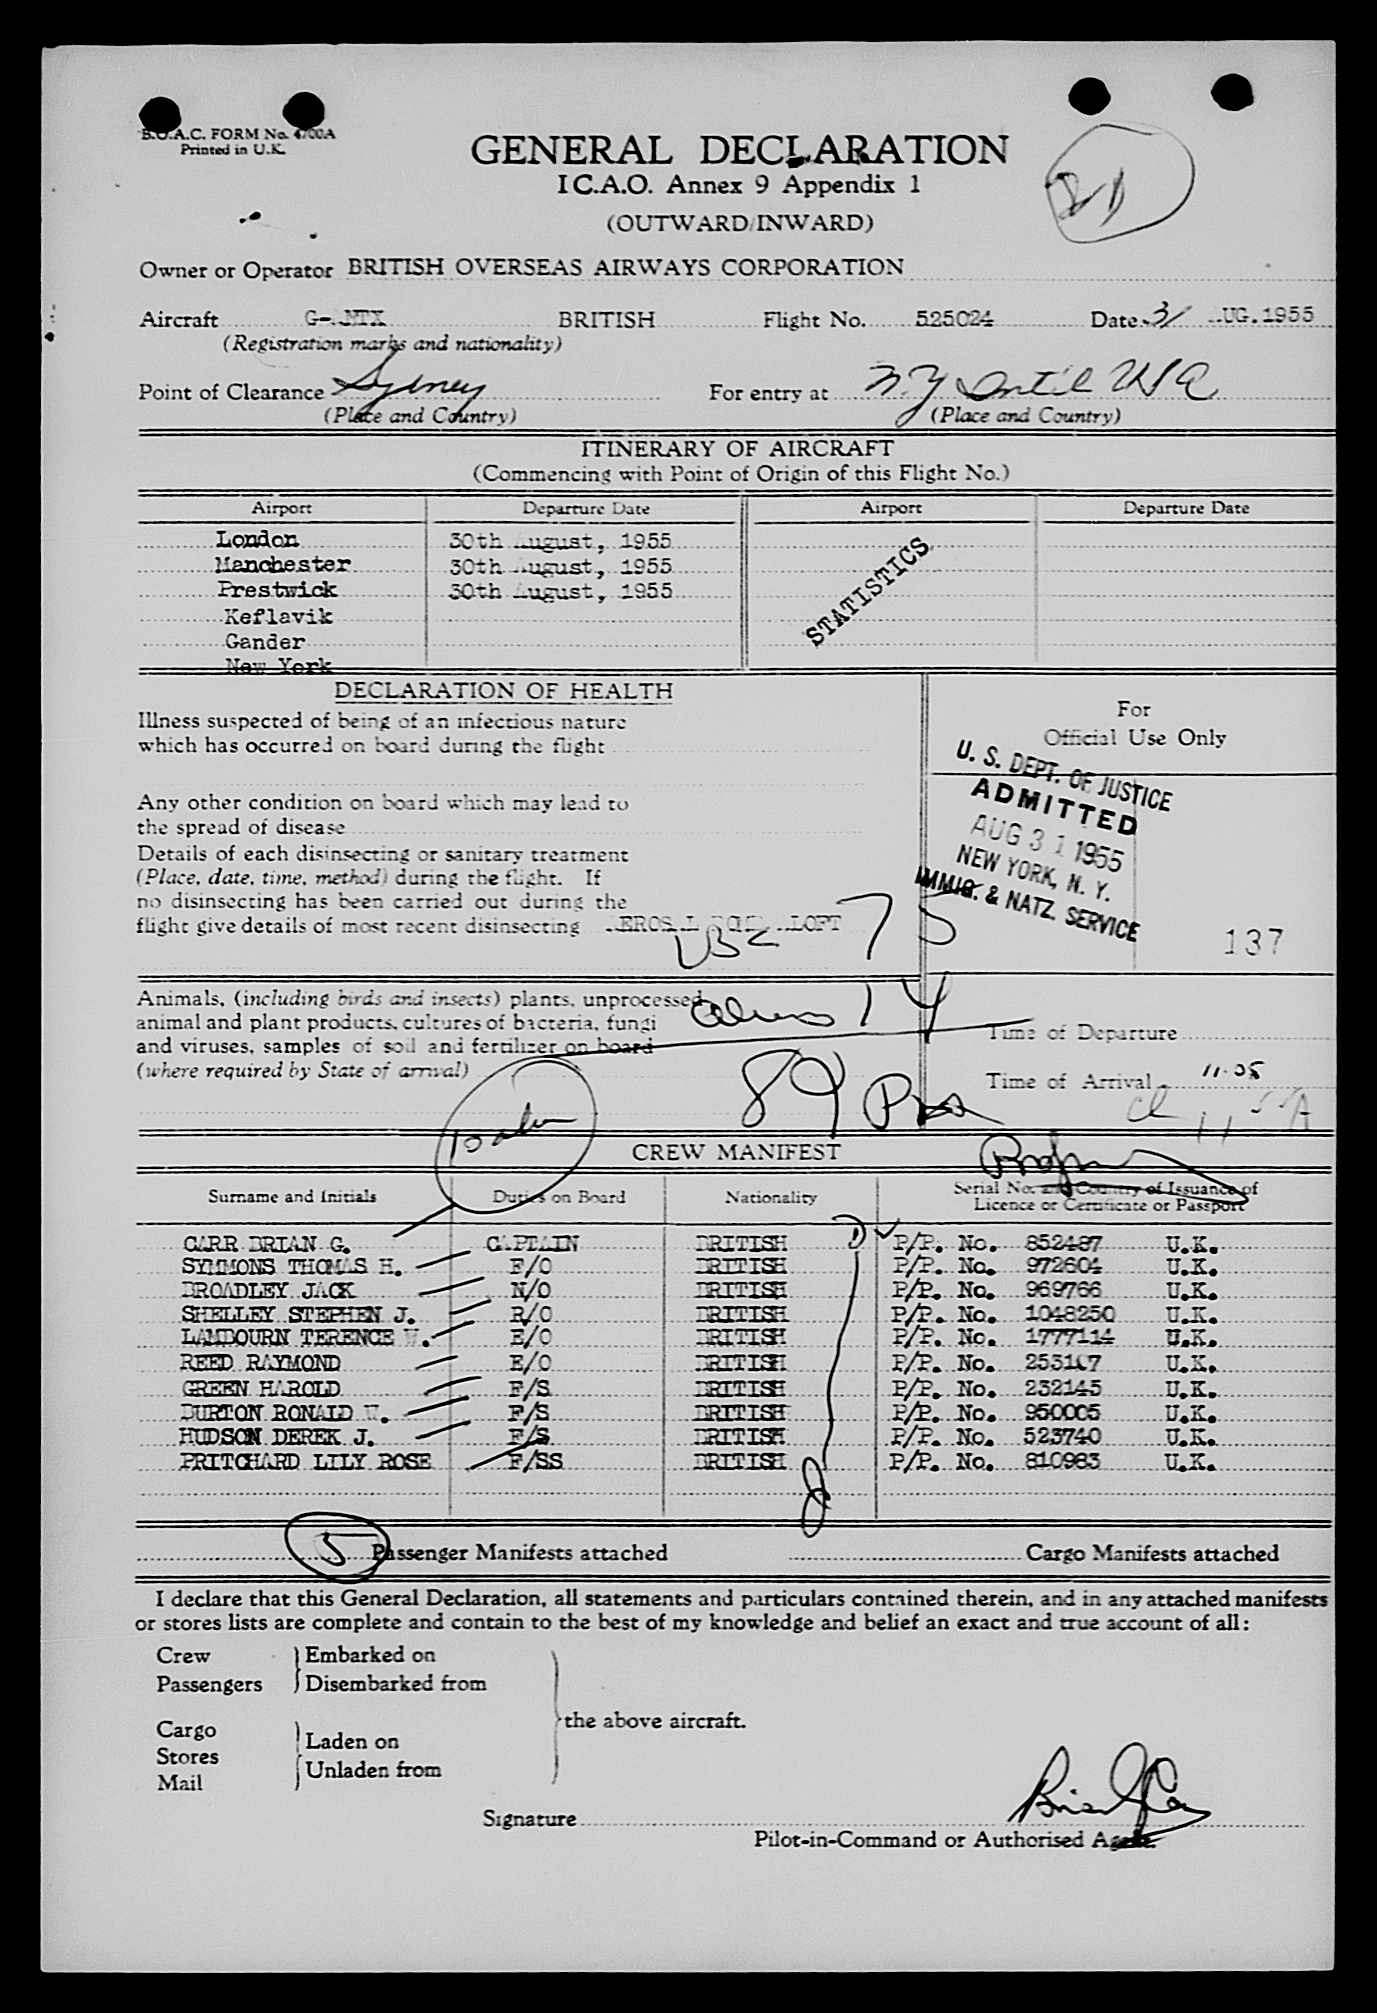 B.O.A.C. FORM No. 4700A
Printed in U.K.
GENERAL DECLARATION
I C.A.O. Annex 9 Appendix 1
(OUTWARD/INWARD)
Owner or Operator BRITISH OVERSEAS AIRWAYS CORPORATION
Aircraft G-.NTX BRITISH Flight No. 525024 Date 31 .UG.1955
(Registration marks and nationality)
Point of Clearance Sydney For entry at N.Y. Intl USA
(Place and Country) (Place and Country)
ITINERARY OF AIRCRAFT
(Commencing with Point of Origin of this Flight No.)
Airport Departure Date Airport Departure Date
London 30th August, 1955
Manchester 30th August, 1955
Prestwick 30th August, 1955
Keflavik
Gander
New York
STATISTICS
DECLARATION OF HEALTH
Illness suspected of being of an infectious nature
which has occurred on board during the flight
Any other condition on board which may lead to
the spread of disease
Details of each disinsecting or sanitary treatment
(Place, date, time, method) during the flight. If
no disinsecting has been carried out during the
flight give details of most recent disinsecting
USC 75
For
Official Use Only
U. S. DEPT. OF JUSTICE
ADMITTED
AUG 31 1955
NEW YORK, N. Y.
IMMIG. & NATZ. SERVICE
137
Animals, (including birds and insects) plants, unprocessed
animal and plant products, cultures of bacteria, fungi
and viruses, samples of soil and fertilizer on board
(where required by State of arrival)
Aliens 14
89 Pax
Time of Departure
Time of Arrival 11.05
CREW MANIFEST
Surname and Initials Duties on Board Nationality Serial No. and Country of Issuance of
Licence or Certificate or Passport
CARR BRIAN G. CAPTAIN BRITISH P/P. No. 852487 U.K.
SYMMONS THOMAS H. F/O BRITISH P/P. No. 972604 U.K.
BROADLEY JACK N/O BRITISH P/P. No. 969766 U.K.
SHELLEY STEPHEN J. R/O BRITISH P/P. No. 1048250 U.K.
LAMBOURN TERENCE W. E/O BRITISH P/P. No. 1777114 U.K.
REED RAYMOND E/O BRITISH P/P. No. 253167 U.K.
GREEN HAROLD F/S BRITISH P/P. No. 232145 U.K.
BURTON RONALD W. F/S BRITISH P/P. No. 950005 U.K.
HUDSON DEREK J. F/S BRITISH P/P. No. 523740 U.K.
PRITCHARD LILY ROSE F/SS BRITISH P/P. No. 810983 U.K.
5 Passenger Manifests attached Cargo Manifests attached
I declare that this General Declaration, all statements and particulars contained therein, and in any attached manifests
or stores lists are complete and contain to the best of my knowledge and belief an exact and true account of all:
Crew Embarked on
Passengers Disembarked from
the above aircraft.
Cargo Laden on
Stores Unladen from
Mail
Signature Brian G Carr
Pilot-in-Command or Authorised Agent.